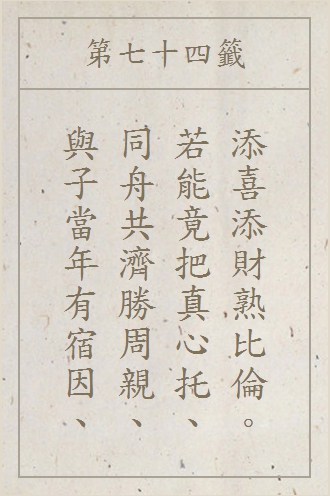 第七十四籤
與子當年有宿因、
同舟共濟勝周親、
若能竟把真心托、
添喜添財熟比倫。